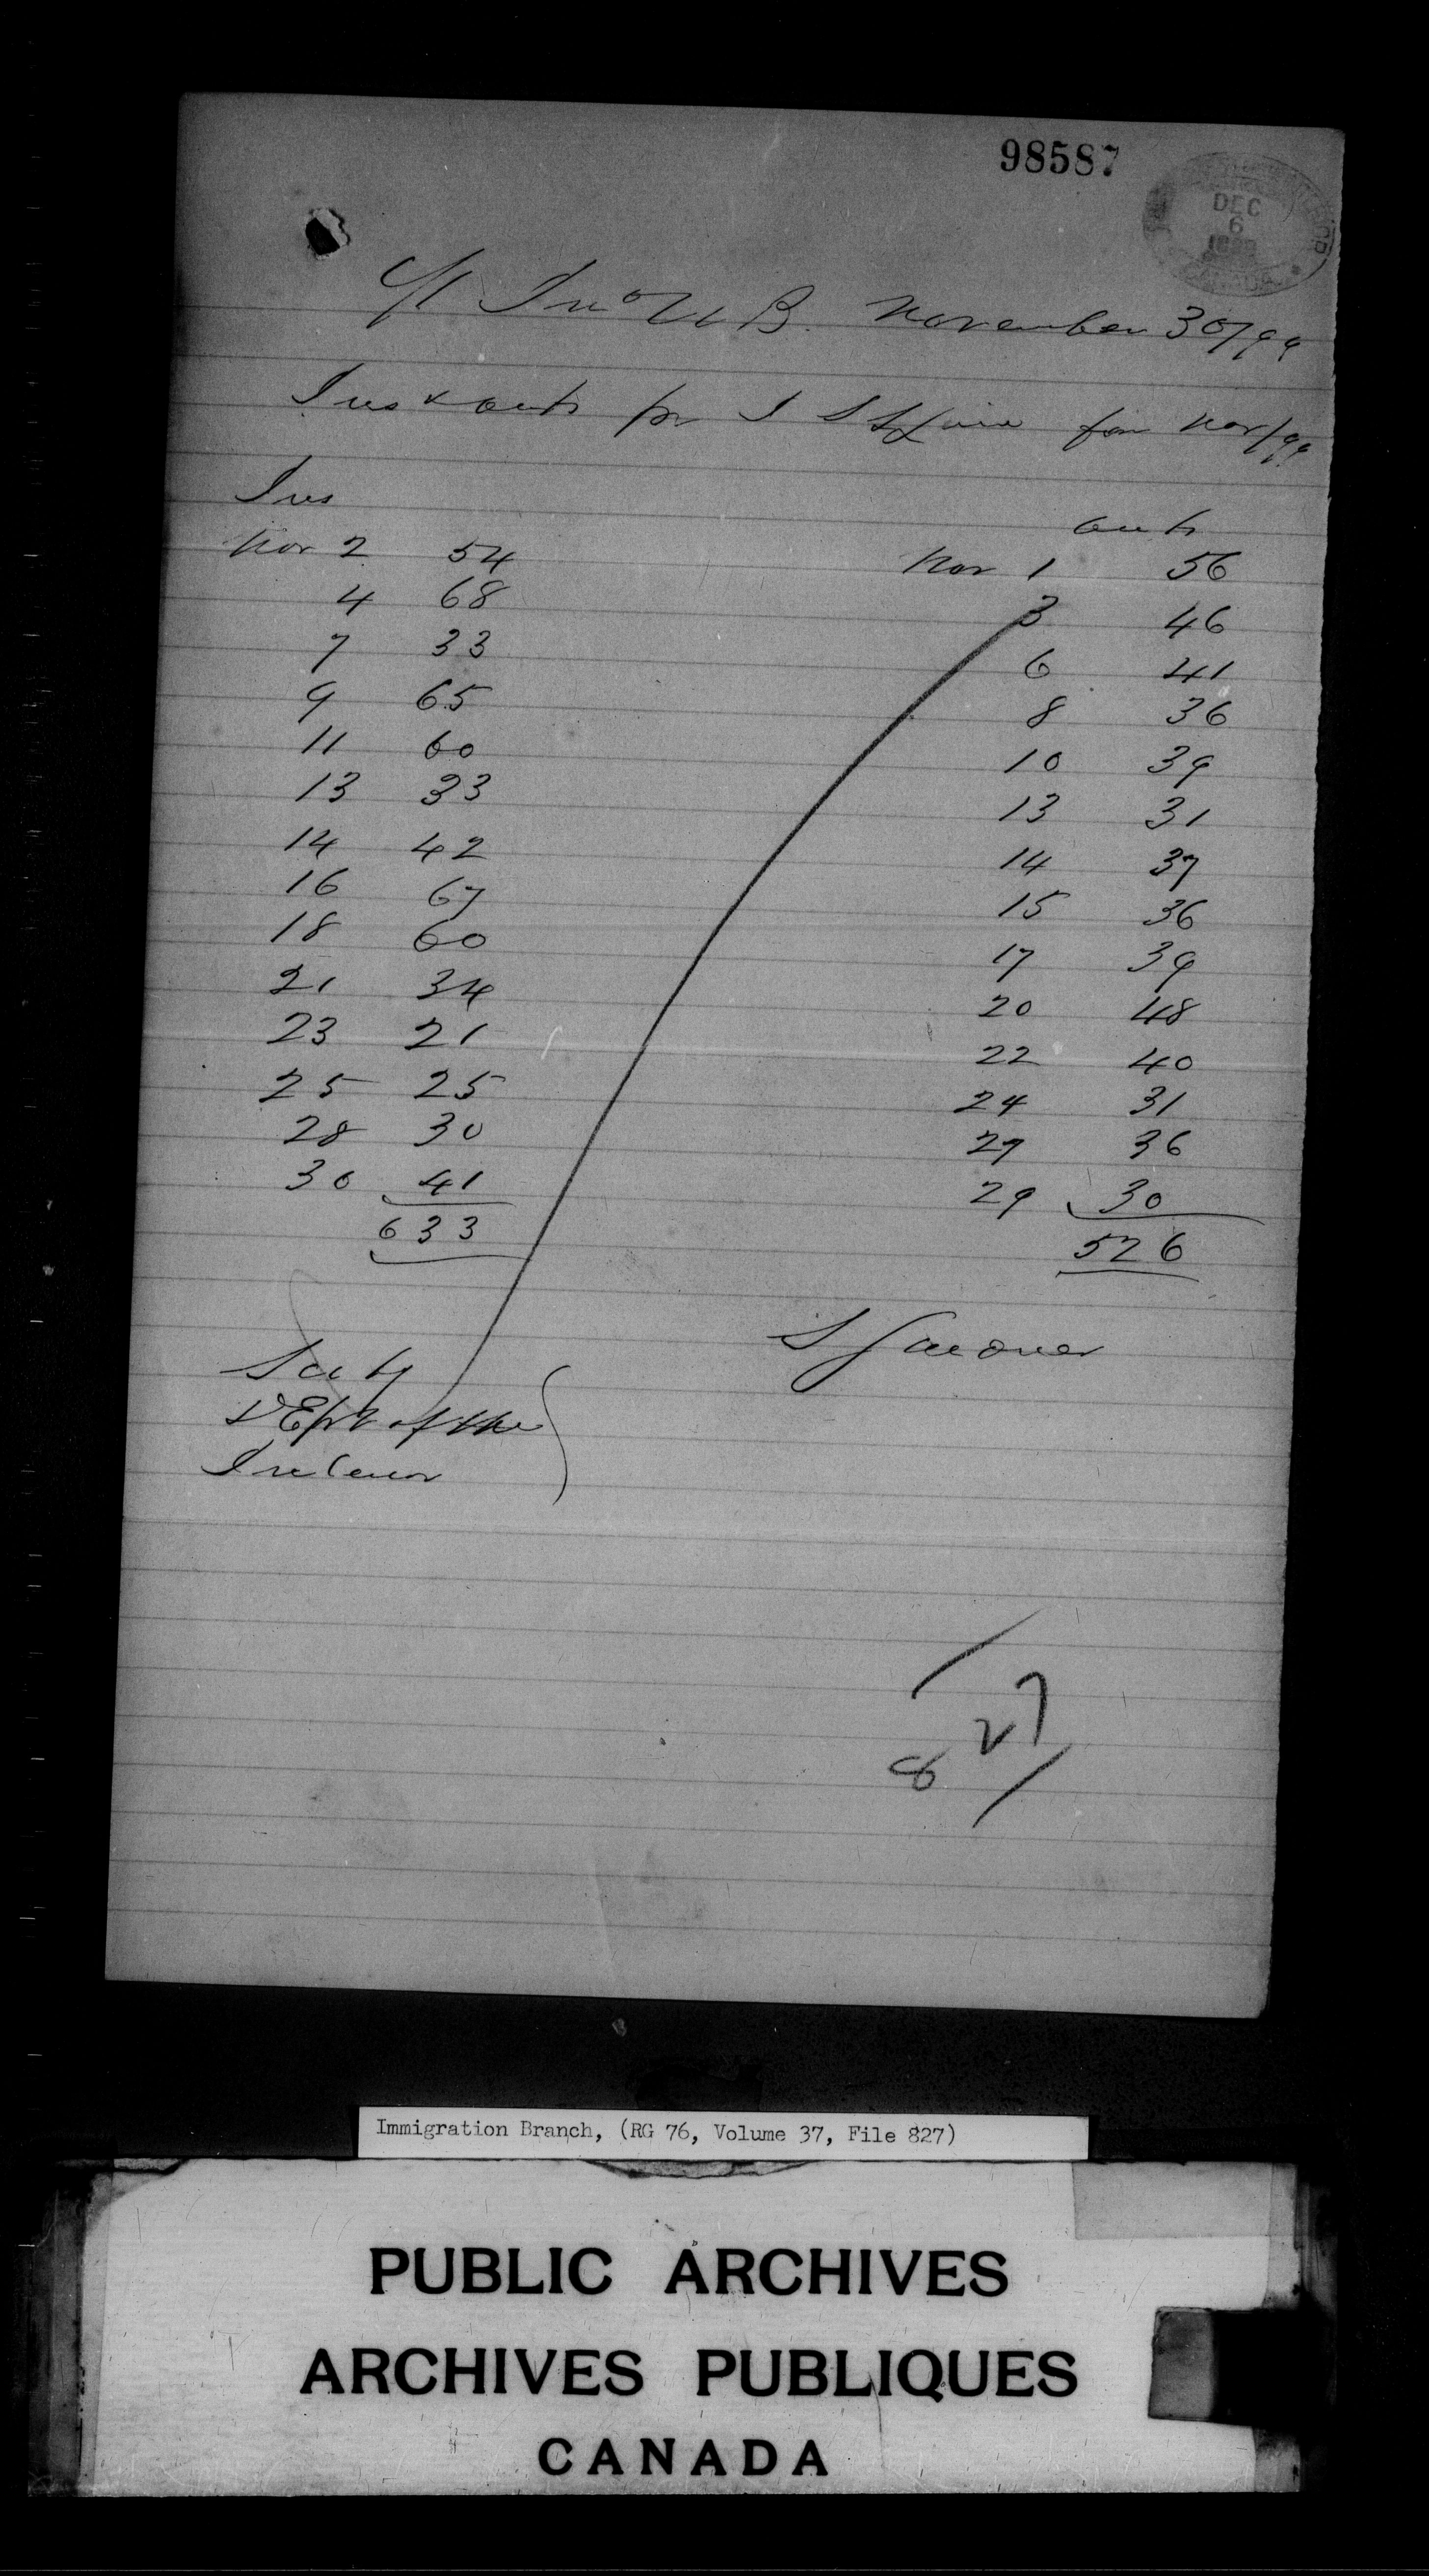 98587
DEC
6
1899
CANADA
St Jno N B. November 30/99
Ins & outs pr S S for Nov/99
Ins
outs
Nov 2 54 Nov 1 56
4 68 3 46
7 33 6 41
9 65 8 36
11 60 10 39
13 33 13 31
14 42 14 37
16 67 15 36
18 60 17 39
21 34 20 48
23 21 22 40
25 25 24 31
28 30 27 36
30 41 29 30
633 526
S Gardner
Secty
DEpt of the
Interior
827
Immigration Branch, (RG 76, Volume 37, File 827)
PUBLIC ARCHIVES
ARCHIVES PUBLIQUES
CANADA